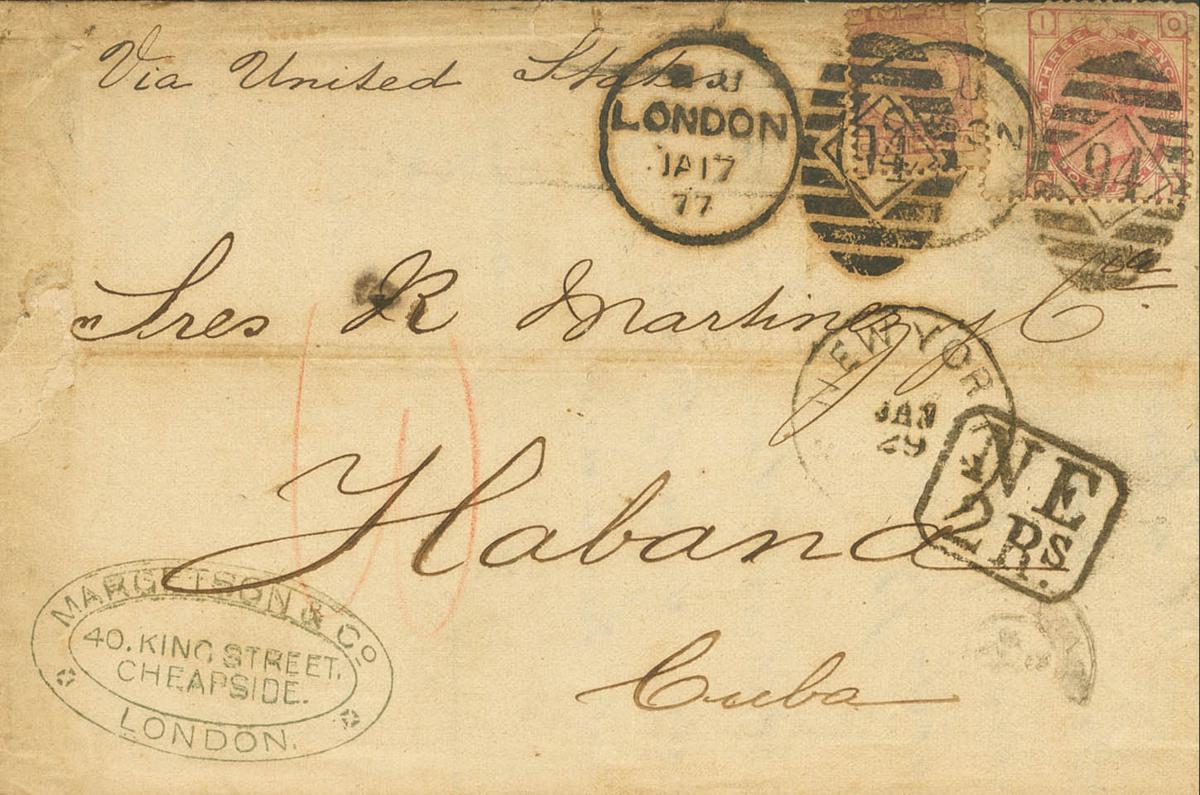 Via United States
LONDON
JA 17
77
94
94
I O
THREE PENCE
Sres R Martinez y Ca
NEW YORK
JAN
29
NE
2 Rs.
Habana
Cuba
MARGETSON & Co
40. KING STREET.
CHEAPSIDE.
LONDON.